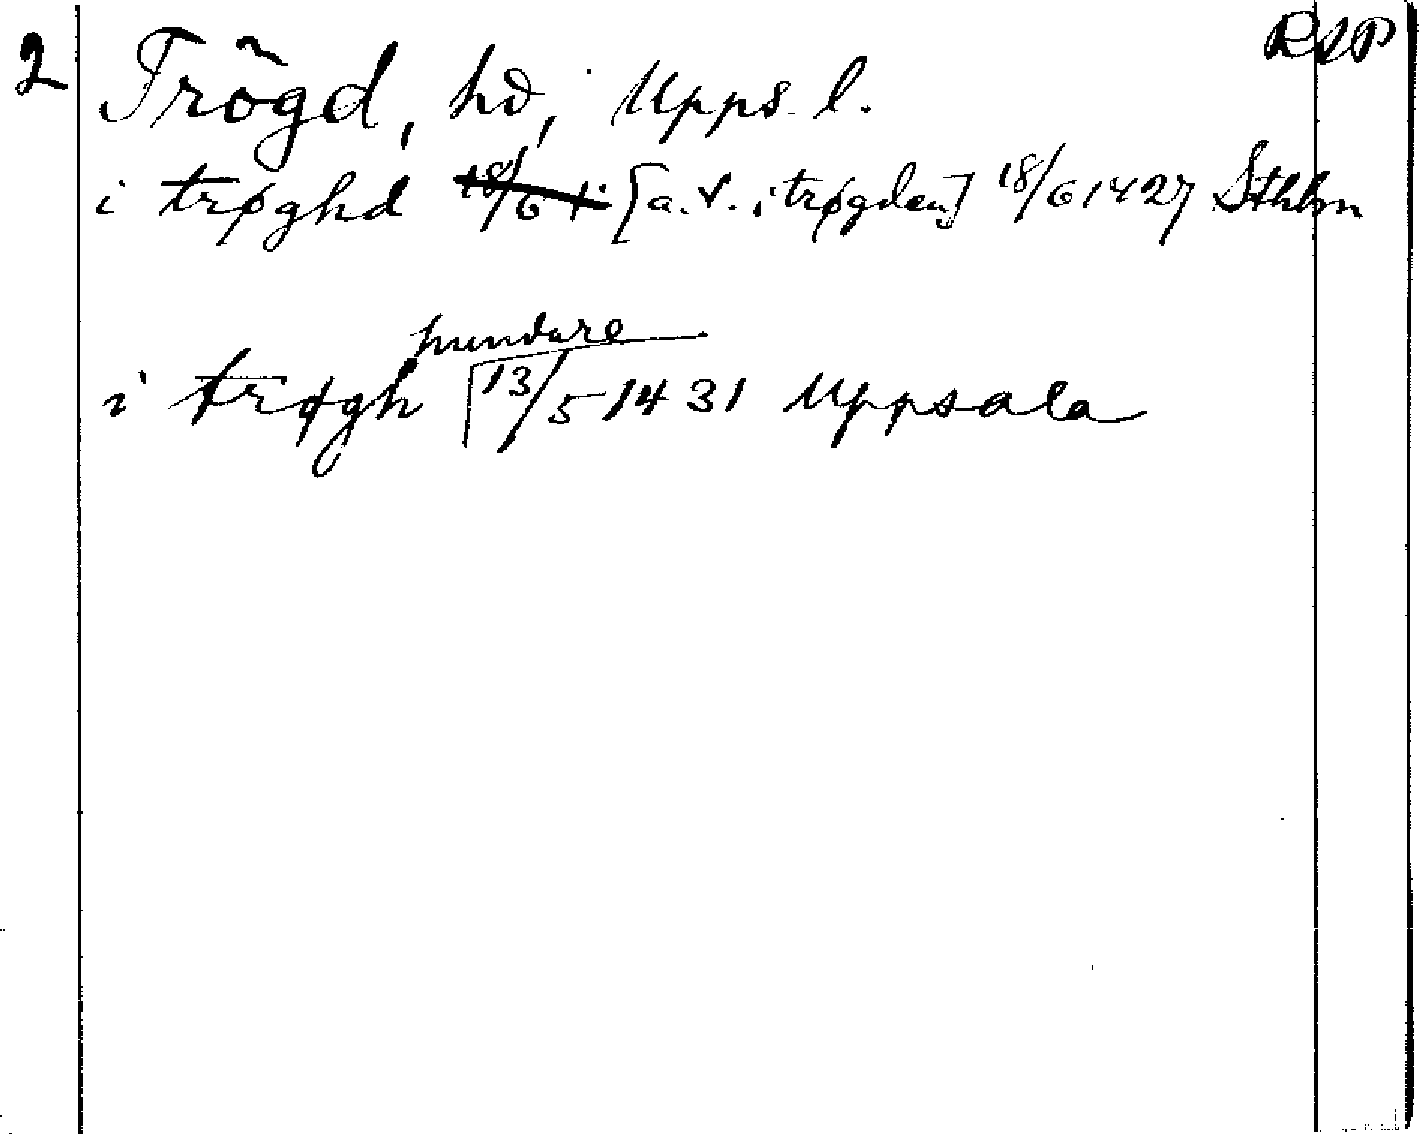 2 Trögd, hd, Upps. l. RAP
i trøghd [a. v. i trøgden] 18/6 1427 Sthlm
pundare
i trøgh 13/5 1431 Uppsala